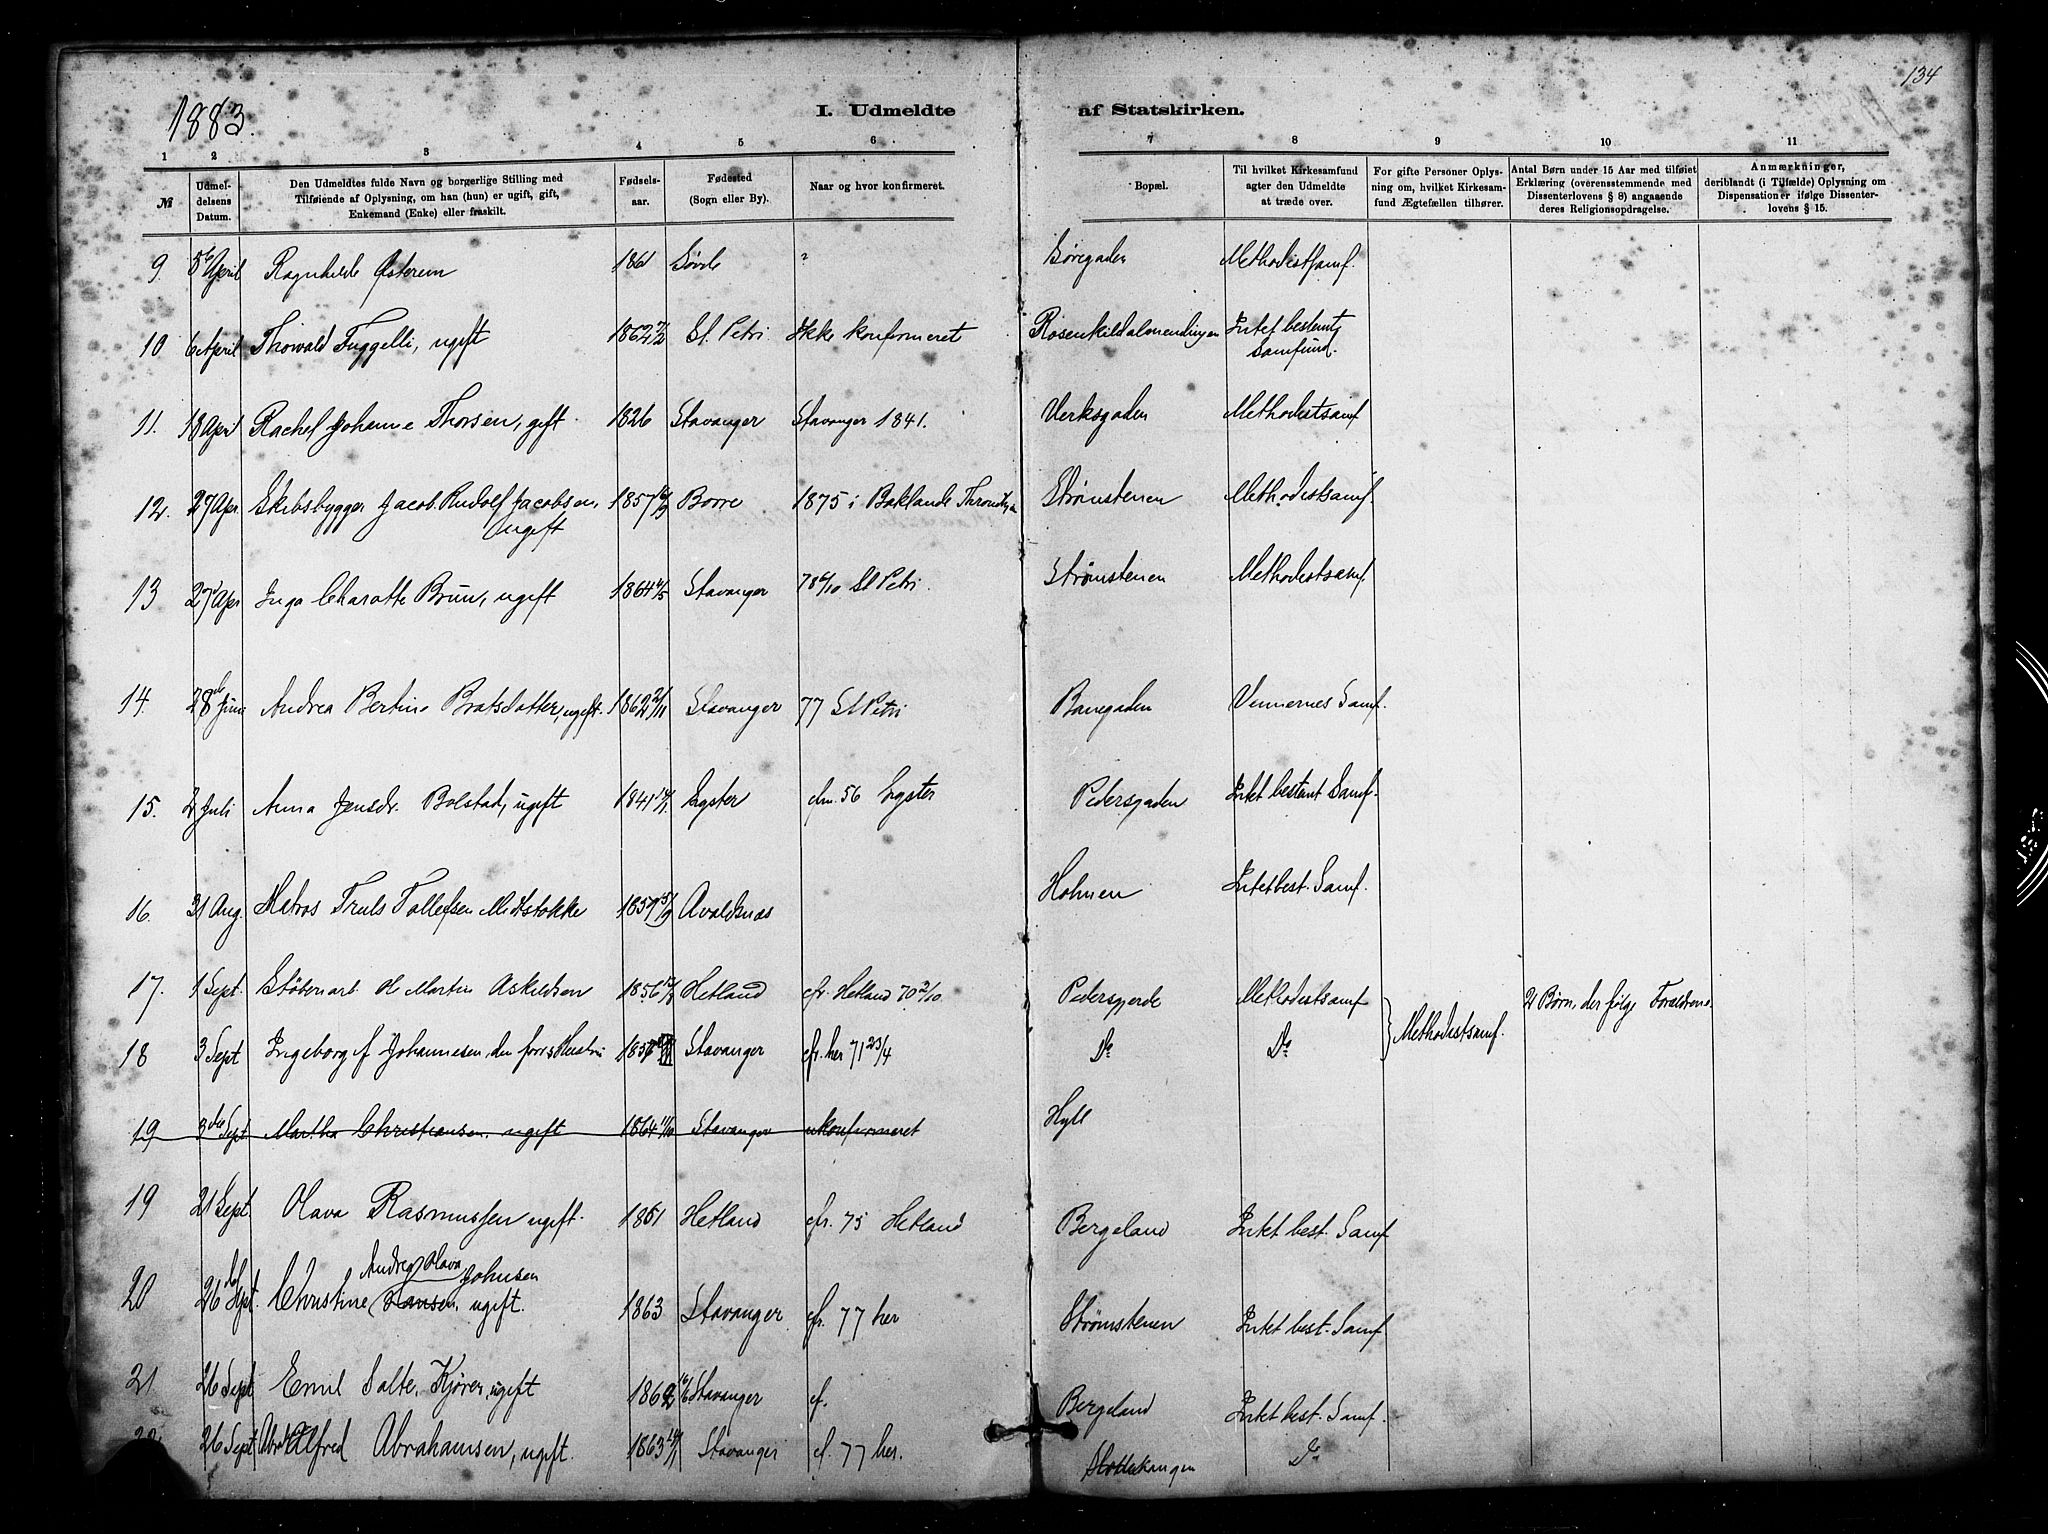 134
1883.
I. Udmeldte af Statskirken.
1 2 3 4 5 6 7 8 9 10 11
№
Udmel-
delsens
Datum.
Den Udmeldtes fulde Navn og borgerlige Stilling med
Tilføiende af Oplysning, om han (hun) er ugift, gift,
Enkemand (Enke) eller fraskilt.
Fødsels-
aar.
Fødested
(Sogn eller By).
Naar og hvor konfirmeret.
Bopæl.
Til hvilket Kirkesamfund
agter den Udmeldte
at træde over.
For gifte Personer Oplys-
ning om, hvilket Kirkesam-
fund Ægtefællen tilhører.
Antal Børn under 15 Aar med tilføiet
Erklæring (overensstemmende med
Dissenterlovens § 8) angaaende
deres Religionsopdragelse.
Anmærkninger,
deriblandt (i Tilfælde) Oplysning om
Dispensationer ifølge Dissenter-
lovens § 15.
9. April Ragnhilde Østerem 1861 Søvde ? Søregaden Methodistsamf.
10 6 April Thorvald Tuggelli, ugift 1862 St. Petri Ikke konfirmeret Rosenkildalmendingen Intet bestemt
Samfund.
11. 18 April Rachel Johanne Thorsen, gift. 1826 Stavanger Stavanger 1841. Verksgaden Methodistsamf
12. 27 Apr Skibsbygger Jacob Rudolf Jacobsen, 1857 Borre 1875 i Baklandet Strømstenen Methodistsamf.
ugift
13 27 Apr Inga Charlotte Bruun, ugift 1864 Stavanger 78 6/10 St Petri. Strømstenen Methodistsamf
14. 28 Juni Andrea Bertine Bratsdatter, ugift. 1862 Stavanger 77 St Petri Banegaden Vennernes Samf.
15. 2 Juli Anna Jensdr. Bolstad, ugift 1841 Lyster 56 Lyster Pedersgaden Intet bestemt Samf.
16. 31 Aug. Matros Truls Tollefsen Midtstokke 1857 Avaldsnes Holmen Intet best. Samf.
17. 1 Sept. Støberiarb. Martin Askildsen 1856 Hetland cfr. Hetland 70 2/10 Pedersgjerde Methodistsamf 2 Børn, der følge Forældrene
18 3 Sept Ingeborg f Johannesen den forr.s Hustru 1857 Stavanger cfr. her 71 23/4 Do Do } Methodistsamf.
19 3 Sept Martha Christiansen, ugift 1864 Stavanger ukonfirmeret Hyll
19 21 Sept Olava Rasmussen ugift. 1861 Hetland cfr. 75 Hetland Bergeland Intet best. Samf
Andrea Olava Johnsen
20 26 Sept. Christine (Hansen, ugift. 1863 Stavanger cfr. 77 her Strømstenen Intet best. Samf
21. 26 Sept Emil Salte, Kjører, ugift 1862 Stavanger cf. Bergeland Intet best. Samf.
26 Sept Alfred Abrahamsen, ugift. 1863 Stavanger cf. 77 her. Do